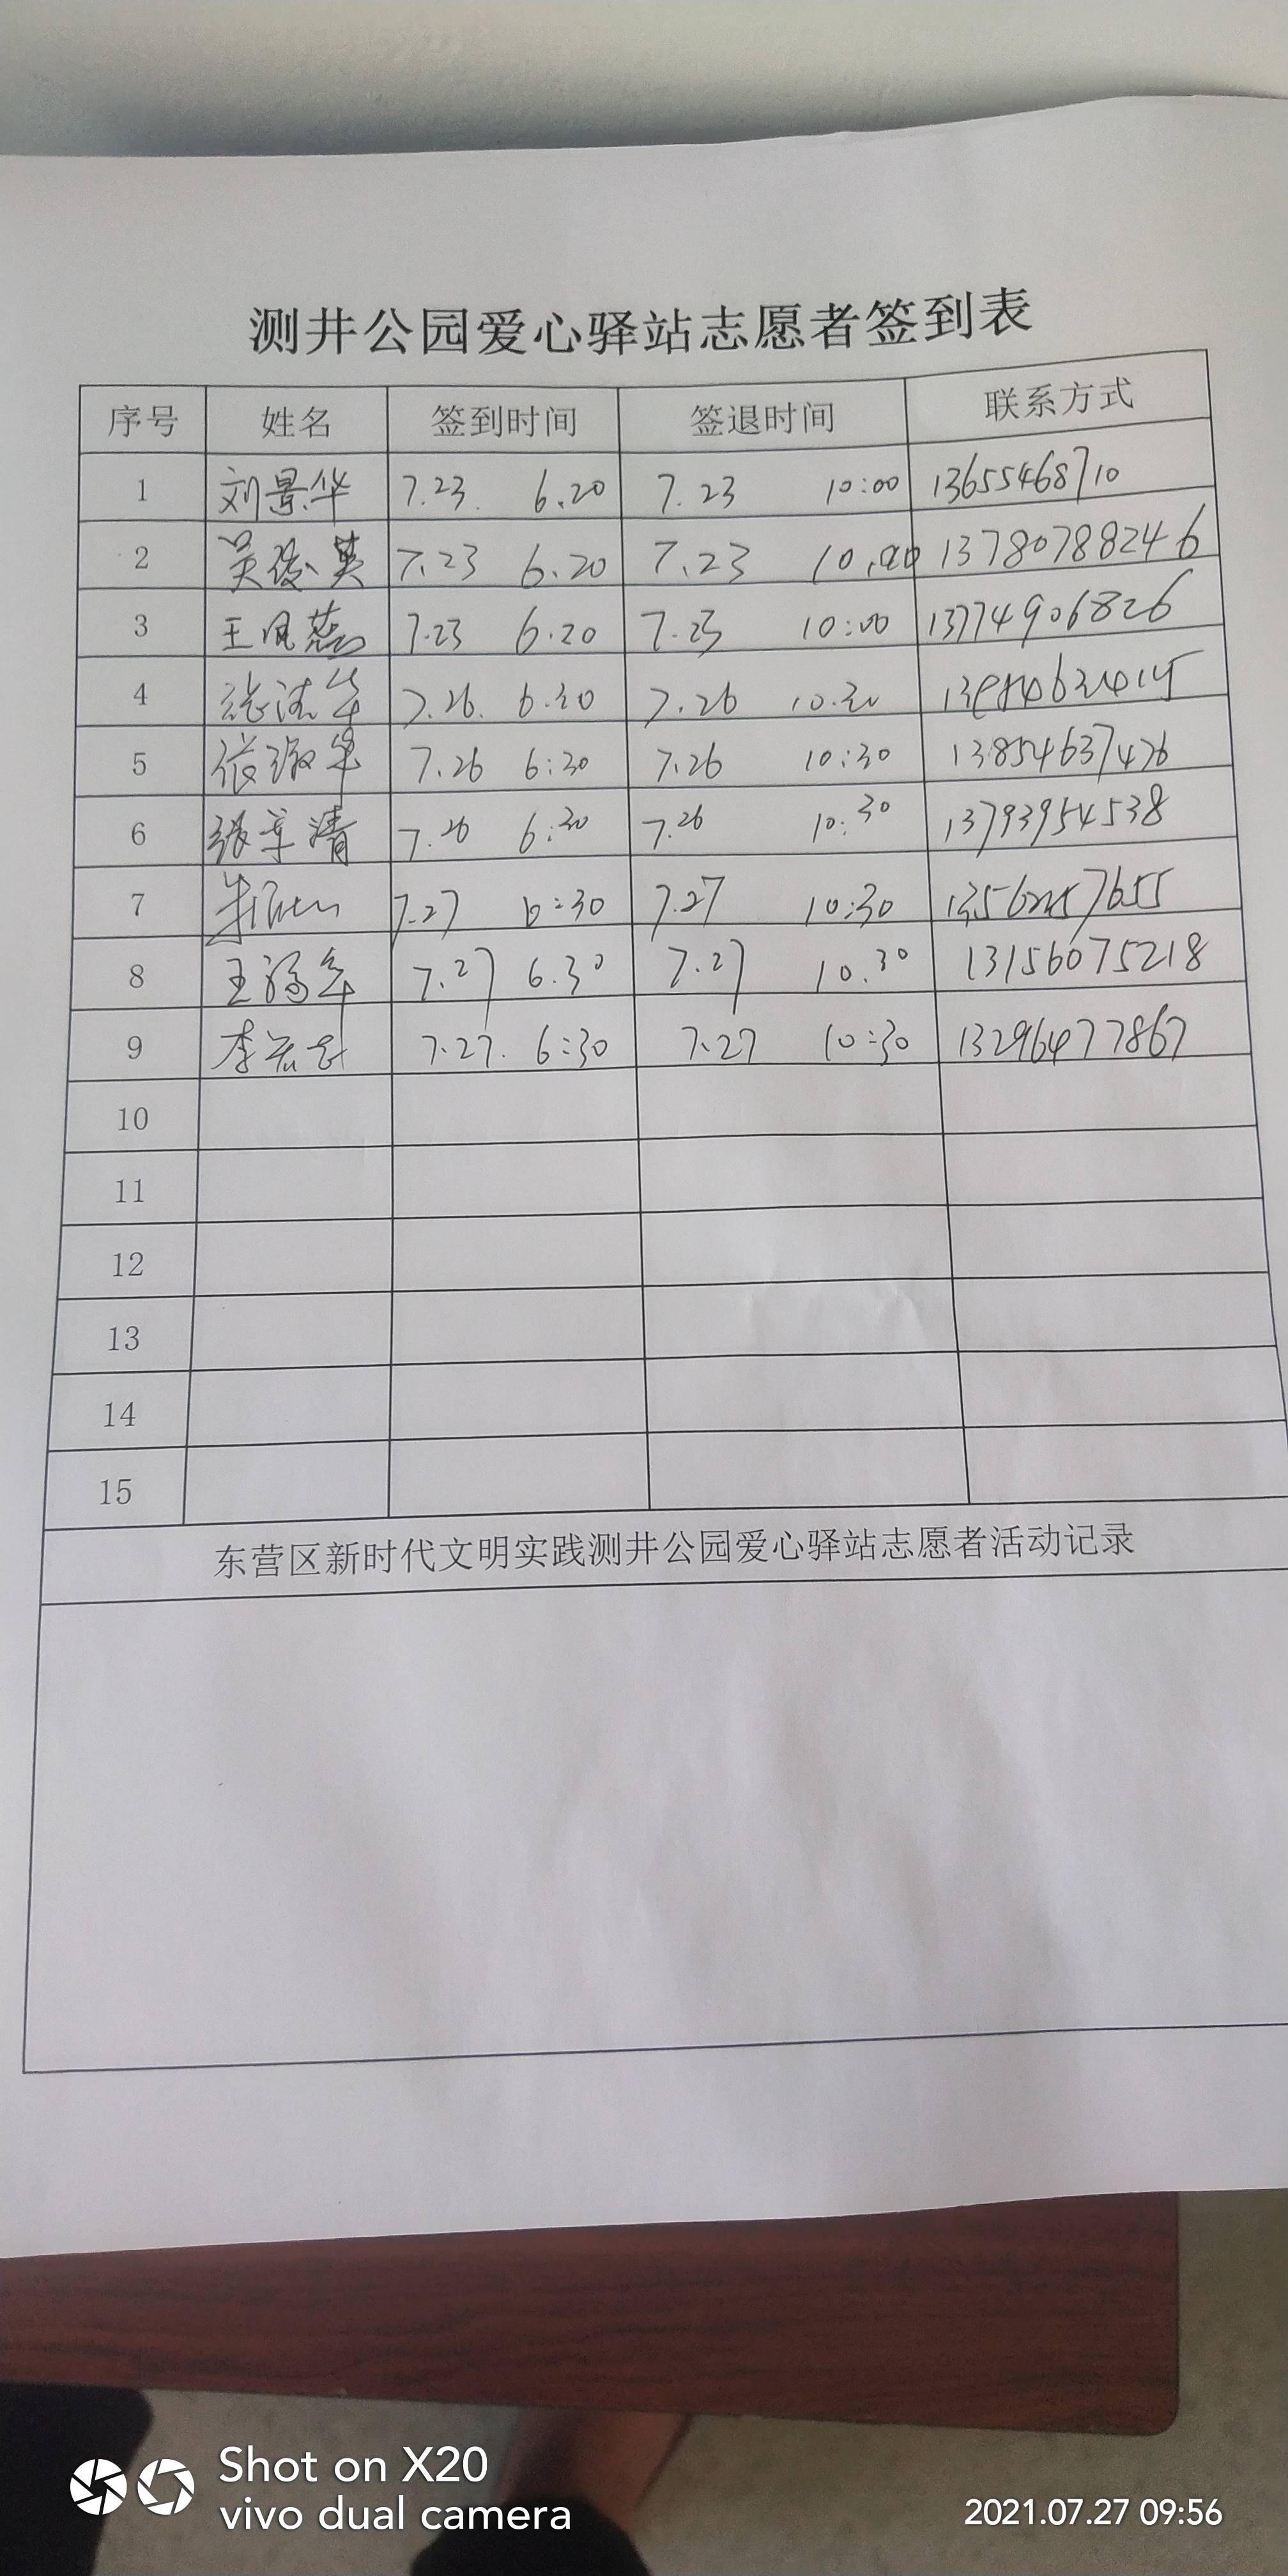 测井公园爱心驿站志愿者签到表
序号 姓名 签到时间 签退时间 联系方式
1 刘景华 7.23. 6.20 7.23 10:00 13655468710
2 吴 英 7.23 6.20 7.23 13780788246
3 王凤蕊 7.23 6.20 7.23 10:00 13774906826
4 张 华 7.26. 6.30 7.26 10.30
5 张淑华 7.26 6:30 7.26 10:30 13854637476
6 张章清 7.26 6:30 7.26 10:30 13793954538
7 7.27 6:30 7.27 10:30
8 王 华 7.27 6.30 7.27 10.30 13156075218
9 李 7.27. 6:30 7.27 10:30 13296477867
10
11
12
13
14
15
东营区新时代文明实践测井公园爱心驿站志愿者活动记录
Shot on X20
vivo dual camera
2021.07.27 09:56